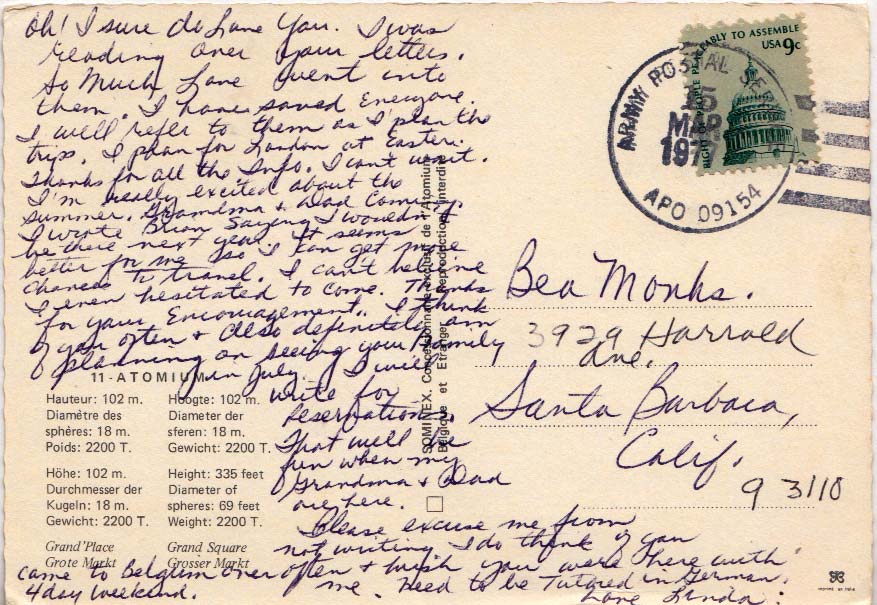 Oh! I sure do Love You. I was
reading over your letters.
So Much Love went into
them. I have saved Everyone.
I will refer to them as I plan the
trips. I plan for London at Easter.
Thanks for all the Info. I can't wait.
I'm really excited about the
summer. Grandma & Dad Coming.
I wrote Brian Saying I wouldn't
be there next year. It seems
better for me so I can get more
chances to travel. I can't believe
I even hesitated to come. Thanks
for your Encouragement. I think
of you often & Also definitely am
planning on seeing your Family
in July. I will
write for
reservations.
That will be
fun when my
Grandma & Dad
are here.
Please excuse me from
not writing. I do think of you
often & wish you were here with
me. Need to be Tutored in German.
Love Linda.
came to Belgium over
4 day weekend.
11-ATOMIUM
Hauteur: 102 m.
Diamètre des
sphères: 18 m.
Poids: 2200 T.
Hoogte: 102 m.
Diameter der
sferen: 18 m.
Gewicht: 2200 T.
Höhe: 102 m.
Durchmesser der
Kugeln: 18 m.
Gewicht: 2200 T.
Height: 335 feet
Diameter of
spheres: 69 feet
Weight: 2200 T.
Grand'Place
Grote Markt
Grand Square
Grosser Markt
Concessionnaire exclusif de l'Atomium
Belgique et Etranger Reproduction interdite
RIGHT OF PEOPLE PEACEABLY TO ASSEMBLE
USA 9c
ARMY POSTAL SE
15
MAR
1977
APO 09154
Bea Monks.
3929 Harrold
Ave.
Santa Barbara,
Calif.
93110